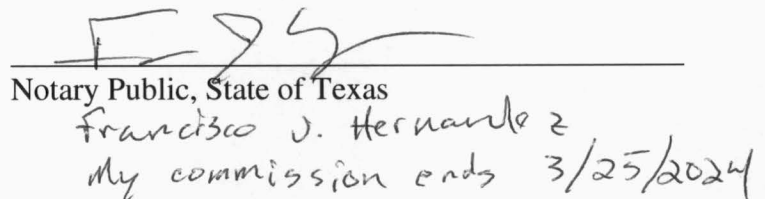 Notary Public, State of Texas
Francisco J. Hernandez
My commission ends 3/25/2024